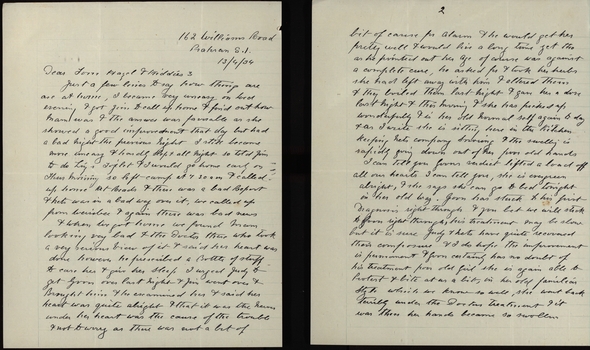 162 Williams Road
Prahran S.1.
13/4/34
Dear Tom Hazel & Kiddies
Just a few lines to say how things are
at home, I became very uneasy on Wed
evening & got Jim to call up home & find out how
Mam was & the answer was favorable as she
showed a good improvement that day but had
a bad night the previous night I still became
more uneasy & hardly slept all night so told Jim
to do Lay's & I would go home early on
Thurs morning so left camp at 7.20 am & called
up home & there was a bad report
& Kate was in a bad way over it, we called up
from & again there was bad news
& when we got home we found Mam
looking very bad & the Doctor there who took
a very serious view of it & said her heart was
done however he prescribed a bottle of stuff
to ease her & give her sleep I urged Judy to
get Goon over last night & Jim went over &
brought him & he examined her & said her
heart was quite alright & that it was the
under her heart was the cause of the trouble
& not to worry as there was not a bit of
2
bit of cause for alarm & he would get her
pretty well & would live a long time yet tho
as he pointed out her age of course was against
a complete cure, he asked for & took the herbs
she had left away with him & altered them
& they boiled them last night & gave her a dose
last night & this morning & she has picked up
wonderfully & is her old normal self again to day
& as I write she is sitting here in the kitchen
keeping Kate company & the swelling is
rapidly going down out of her poor old hands
I can tell you Goon's verdict lifted a load off
all our hearts I can tell you, she is
alright, & she says she can go to bed tonight
in her old way. Goon has stuck to his first
Diagnosis right through & you bet we will stick
to Goon right through, his treatment may be slow
but it is sure Judy & Kate have quite recovered
their composure & I do hope the improvement
is permanent & Goon certainly has no doubt of
his treatment poor old girl she is again able to
protest & bite at us a bit, in her old familiar
style which we know so well, she went back
under the Doctors treatment & it
was then her hands became so swollen